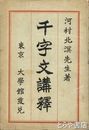 河村北溟先生著
千字文講釋
東京 大學館發兌